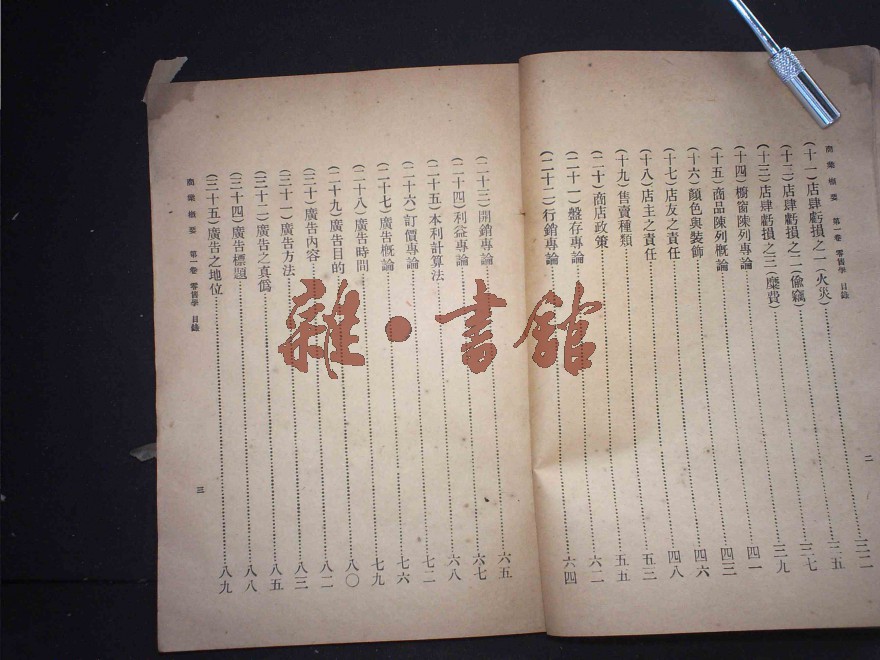 商業概要 第一卷 零售學 目錄
二
(十一)店肆虧損之一(火災)……三二
(十二)店肆虧損之二(偷竊)……三五
(十三)店肆虧損之三(糜費)……三七
(十四)櫥窗陳列專論……三九
(十五)商品陳列概論……四一
(十六)顏色與裝飾……四三
(十七)店友之責任……四六
(十八)店主之責任……四八
(十九)售賣種類……五三
(二十)商店政策……五五
(二十一)盤存專論……六二
(二十二)行銷專論……六四
(二十三)開銷專論……六五
(二十四)利益專論……六七
(二十五)本利計算法……六八
(二十六)訂價專論……七二
(二十七)廣告概論……七六
(二十八)廣告時間……七九
(二十九)廣告目的……八〇
(三十)廣告內容……八二
(三十一)廣告方法……八三
(三十二)廣告之真僞……八五
(三十四)廣告標題……八八
(三十五)廣告之地位……八九
商業概要 第一卷 零售學 目錄
三
雜·書館